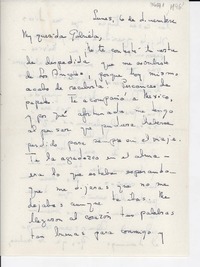 Lunes, 6 de diciembre
My querida Gabriela,
No te contesté la carta
de despedida que me escribiste
de los porque hoy mismo
acabo de recibirla! Percances de
papeles. Te acompaño a México,
y por fin afirmado, me tengo
al pensar que pudiera haberme
perdido para siempre en el viaje.
Te lo agradezco en el alma
era lo que estaba esperando
que me dijeras que no me
dejabas aunque te ibas. Me
llegaron al corazón tus palabras
tan buenas para conmigo y